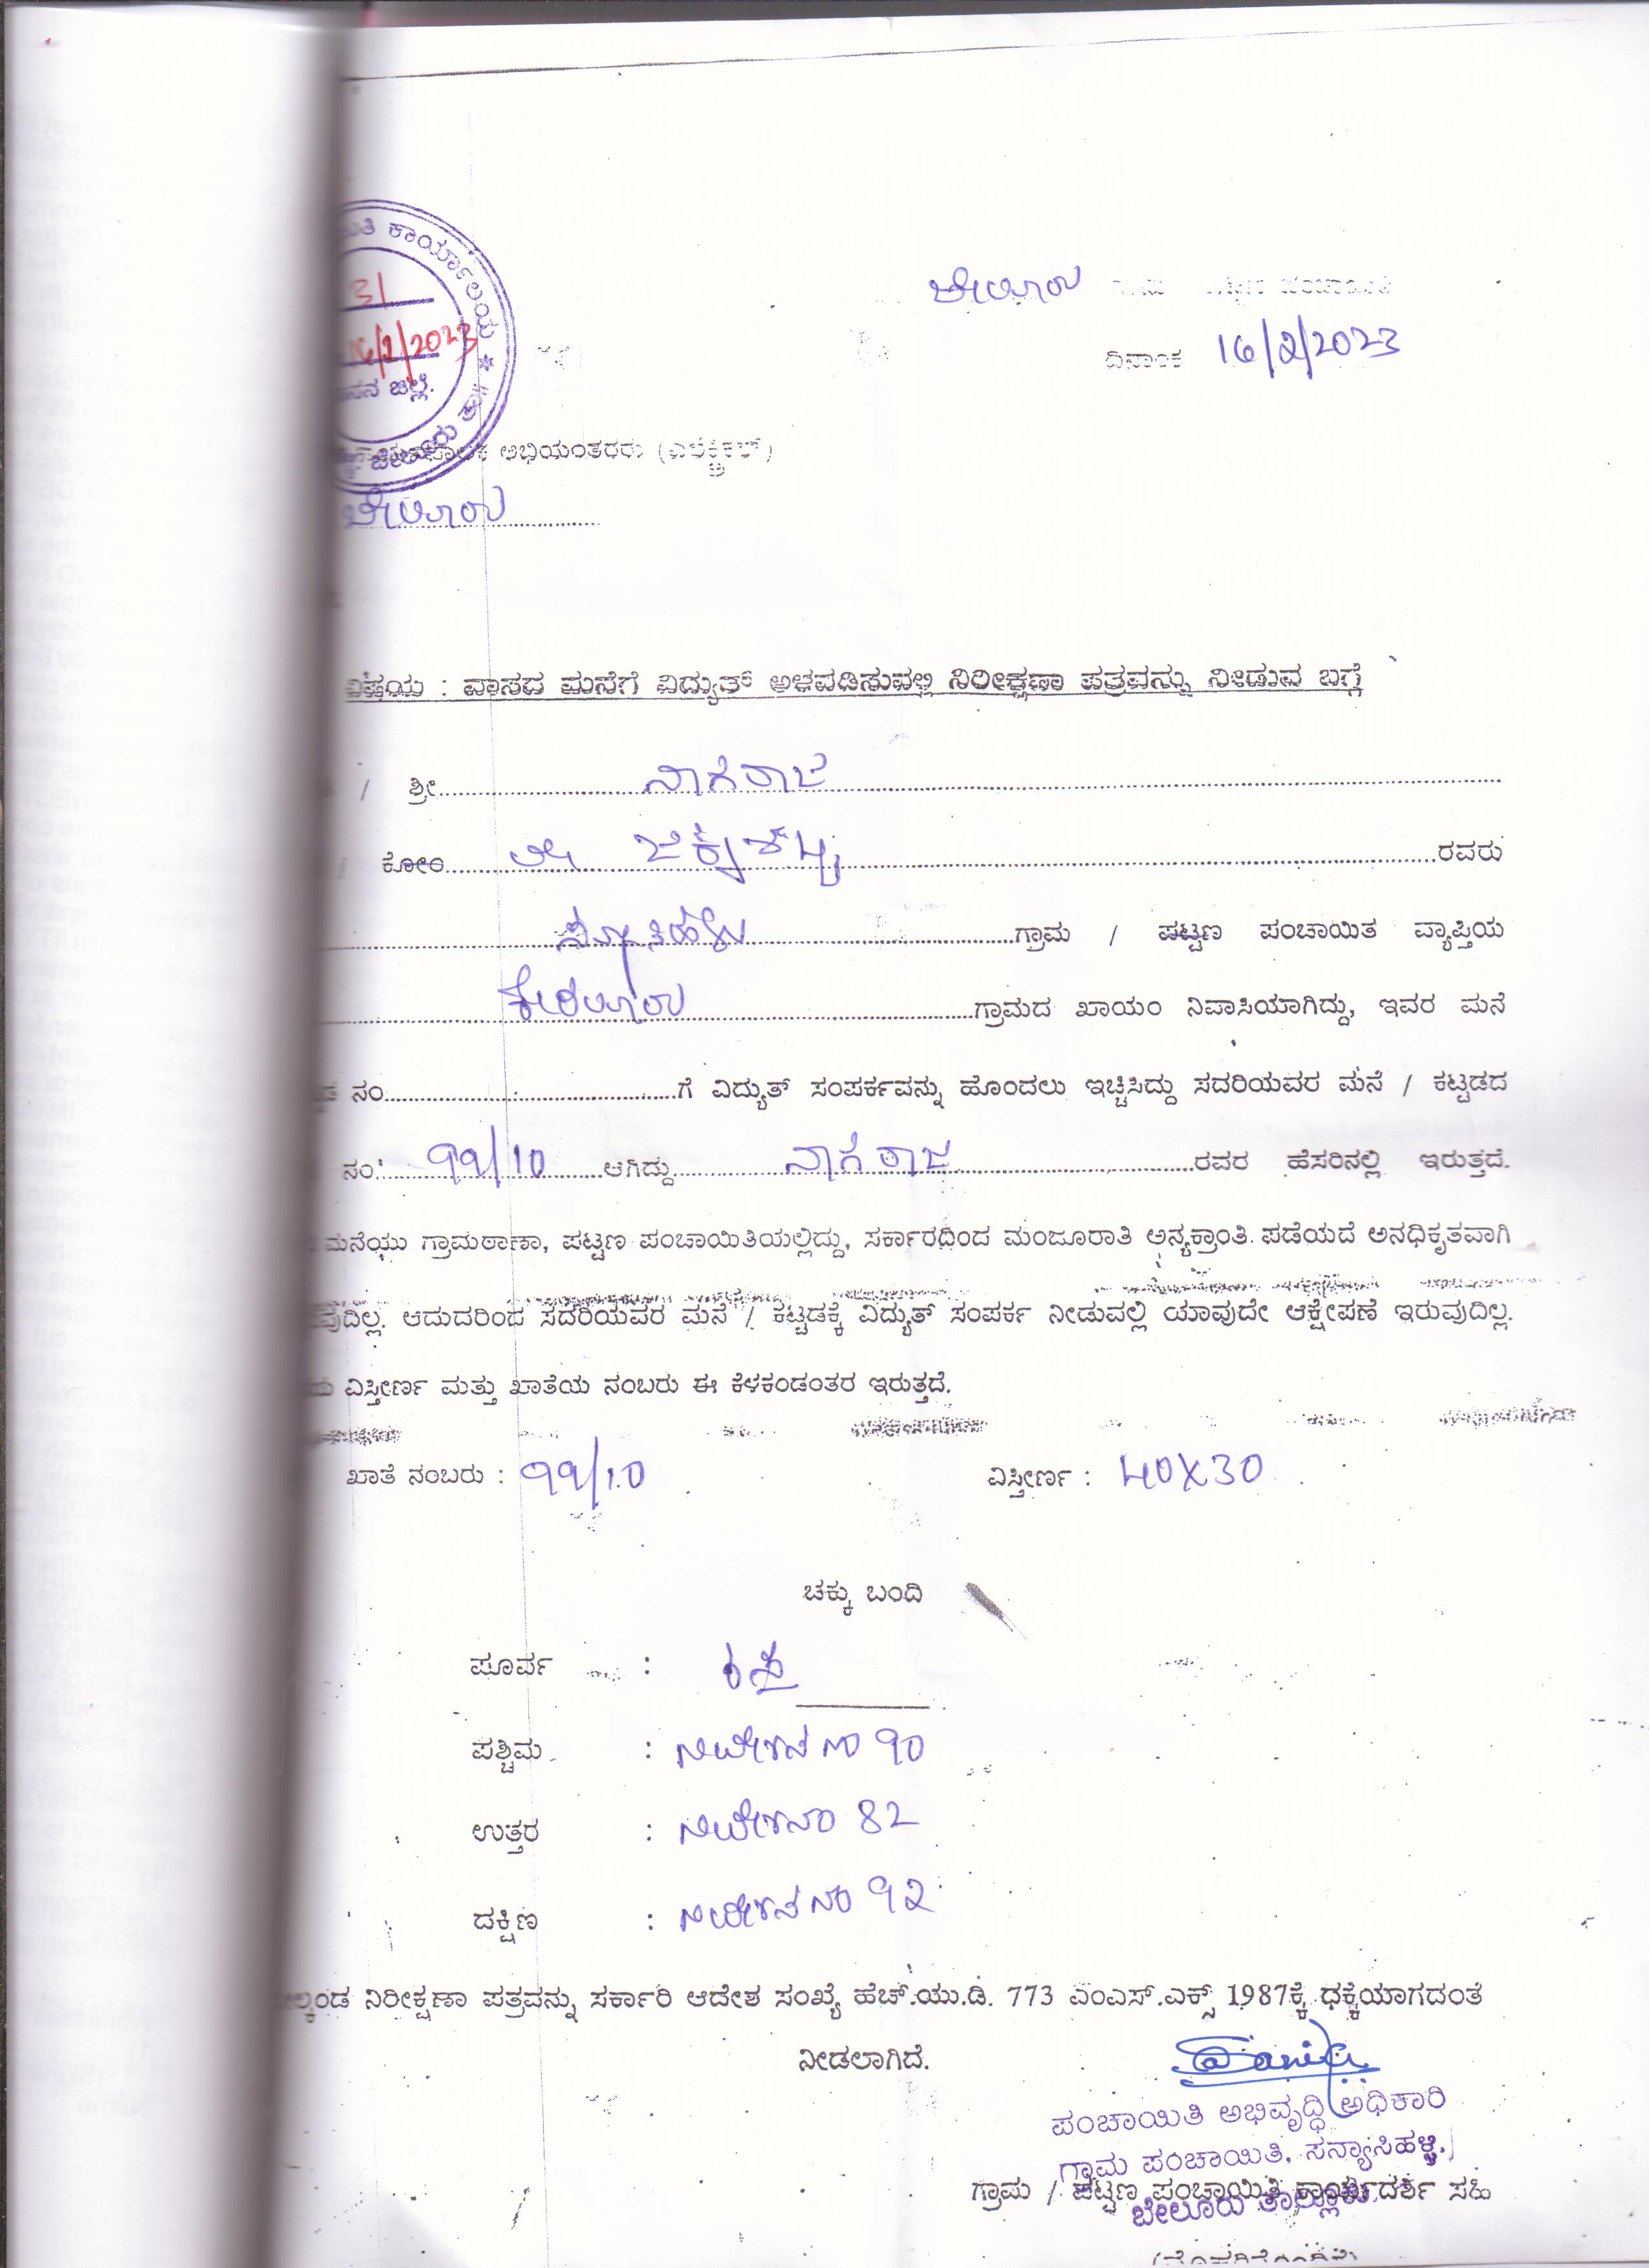 ಕಾರ್ಯಾಲಯ * ಬೇಲೂರು ತಾ||
31
16/2/2023
ಜಿಲ್ಲೆ.
ಬೇಲೂರು
ದಿನಾಂಕ 16/2/2023
ಅಭಿಯಂತರರು (ಎಲೆಕ್ಟ್ರಿಕಲ್)
ಬೇಲೂರು
ವಿಷಯ : ವಾಸದ ಮನೆಗೆ ವಿದ್ಯುತ್ ಅಳವಡಿಸುವಲ್ಲಿ ನಿರೀಕ್ಷಣಾ ಪತ್ರವನ್ನು ನೀಡುವ ಬಗ್ಗೆ
/ ಶ್ರೀ ನಾಗರಾಜ
ಕೋಂ ರವರು
ಗ್ರಾಮ / ಪಟ್ಟಣ ಪಂಚಾಯಿತ ವ್ಯಾಪ್ತಿಯ
ಕೇರಳೂರು ಗ್ರಾಮದ ಖಾಯಂ ನಿವಾಸಿಯಾಗಿದ್ದು, ಇವರ ಮನೆ
ನಂ. ಗೆ ವಿದ್ಯುತ್ ಸಂಪರ್ಕವನ್ನು ಹೊಂದಲು ಇಚ್ಚಿಸಿದ್ದು ಸದರಿಯವರ ಮನೆ / ಕಟ್ಟಡದ
ನಂ 99/10 ಆಗಿದ್ದು ನಾಗರಾಜ ರವರ ಹೆಸರಿನಲ್ಲಿ ಇರುತ್ತದೆ.
ಮನೆಯು ಗ್ರಾಮಠಾಣಾ, ಪಟ್ಟಣ ಪಂಚಾಯಿತಿಯಲ್ಲಿದ್ದು, ಸರ್ಕಾರದಿಂದ ಮಂಜೂರಾತಿ ಅನ್ಯಕ್ರಾಂತಿ ಪಡೆಯದೆ ಅನಧಿಕೃತವಾಗಿ
ಆದುದರಿಂದ ಸದರಿಯವರ ಮನೆ / ಕಟ್ಟಡಕ್ಕೆ ವಿದ್ಯುತ್ ಸಂಪರ್ಕ ನೀಡುವಲ್ಲಿ ಯಾವುದೇ ಆಕ್ಷೇಪಣೆ ಇರುವುದಿಲ್ಲ.
ವಿಸ್ತೀರ್ಣ ಮತ್ತು ಖಾತೆಯ ನಂಬರು ಈ ಕೆಳಕಂಡಂತರ ಇರುತ್ತದೆ.
ಖಾತೆ ನಂಬರು : 99/10 ವಿಸ್ತೀರ್ಣ : 40X30
ಚಕ್ಕು ಬಂದಿ
ಪೂರ್ವ : ರಸ್ತೆ
ಪಶ್ಚಿಮ : ನಿವೇಶನ ನಂ 90
ಉತ್ತರ : ನಿವೇಶನಂ 82
ದಕ್ಷಿಣ : ನಿವೇಶನ ನಂ 92
ನಿರೀಕ್ಷಣಾ ಪತ್ರವನ್ನು ಸರ್ಕಾರಿ ಆದೇಶ ಸಂಖ್ಯೆ ಹೆಚ್.ಯು.ಡಿ. 773 ಎಂಎಸ್.ಎಕ್ಸ್ 1987ಕ್ಕೆ ಧಕ್ಕೆಯಾಗದಂತೆ
ನೀಡಲಾಗಿದೆ.
ಪಂಚಾಯಿತಿ ಅಭಿವೃದ್ಧಿ ಅಧಿಕಾರಿ
ಗ್ರಾಮ ಪಂಚಾಯಿತಿ, ಸನ್ಯಾಸಿಹಳ್ಳಿ.
ಗ್ರಾಮ / ಪಟ್ಟಣ ಪಂಚಾಯಿತಿ ಕಾರ್ಯದರ್ಶಿ ಸಹಿ
ಬೇಲೂರು ತಾಲ್ಲೂಕು.